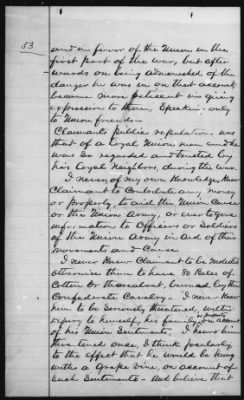 53
and in favor of the Union in the
first part of the war, but after
wards on being admonished of the
danger he was in on that account
became more reticent in giving
expression to them, Speaking only
to Union friends
Claimants public reputation was
that of a Loyal Union man and he
was so regarded and treated by
his Loyal Neighbors, during the war.
I never of my own Knowledge, knew
Claimant to Contribute any money
or property, to aid the Union Cause
or the Union Army, or ever to give
information to Officers or Soldiers
of the Union Army in aid of their
movements and Cause
I never knew Claimant to be molested
otherwise than to have 80 Bales of
Cotton or thereabout, burned by the
Confederate Cavalry. I never knew
him to be seriously threatened, with
injury to himself, his family or property on account
of his Union Sentiments. I heard him
threatened once, I think jocularly,
to the effect that he would be hung
with a grape vine, on account of
such Sentiments. And believe that